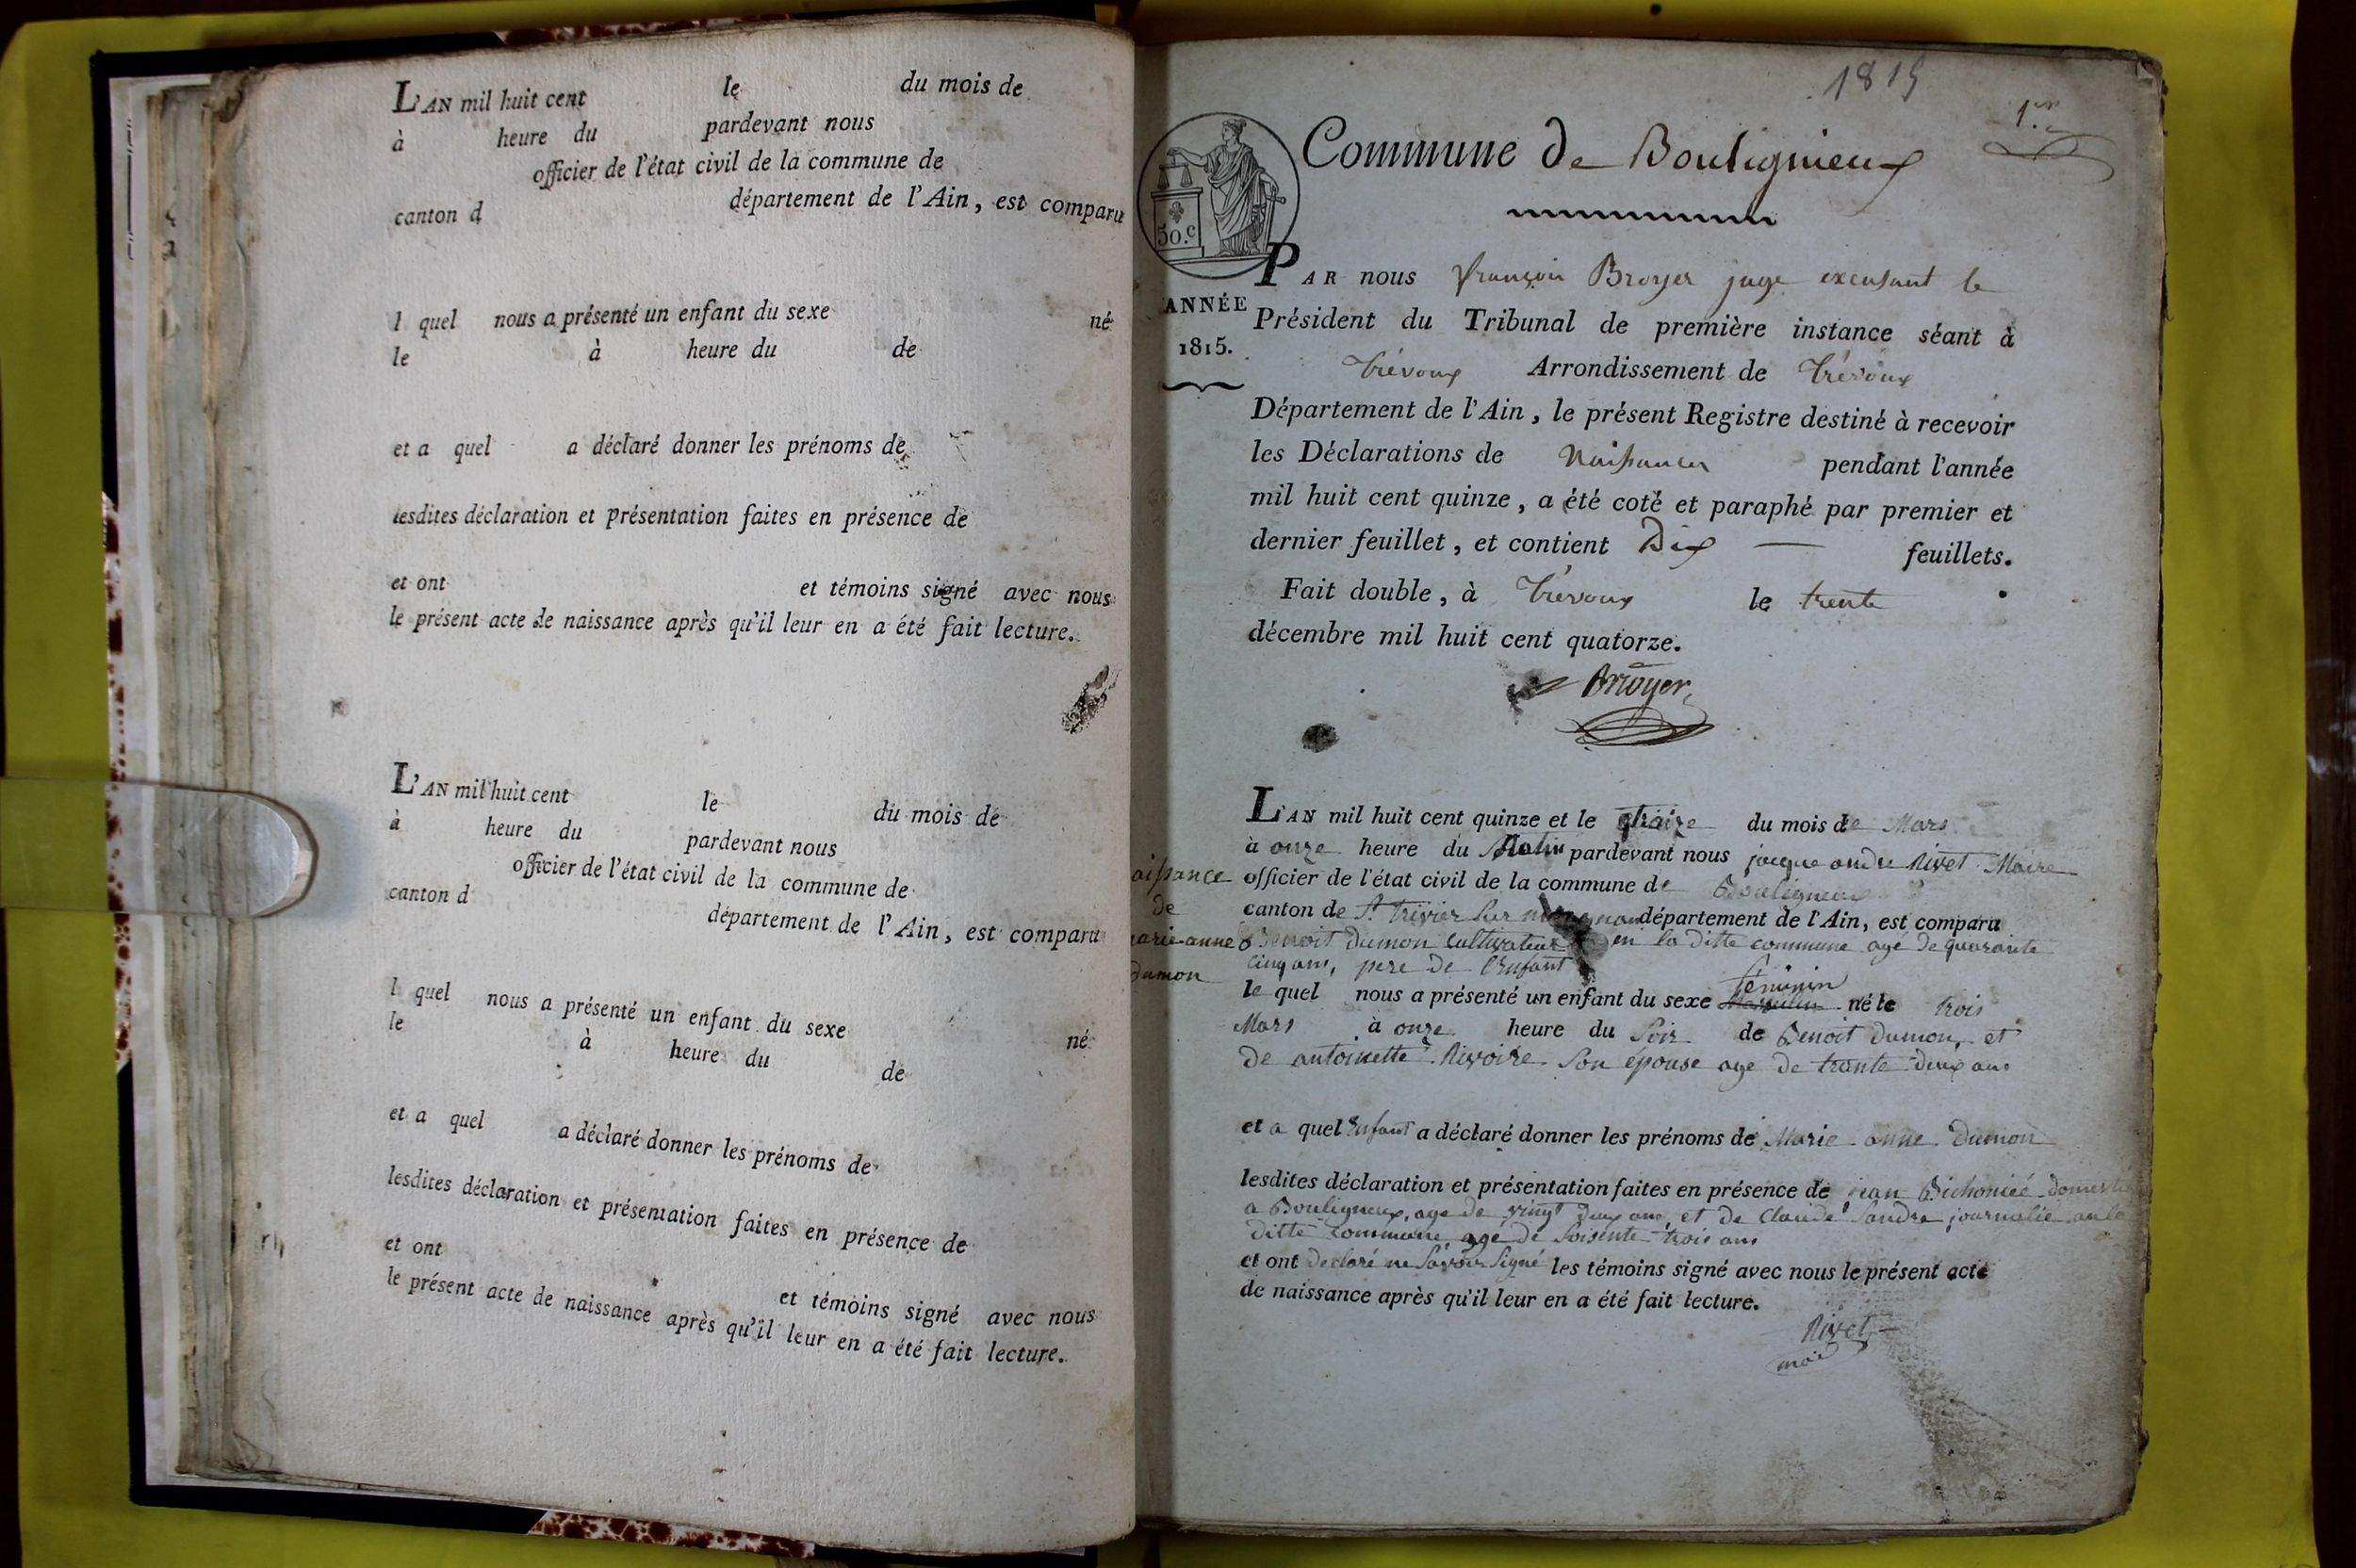 L'AN mil huit cent le du mois de
à heure du pardevant nous
officier de l'état civil de la commune de
canton d département de l'Ain, est comparu
l quel nous a présenté un enfant du sexe né
le à heure du de
et a quel a déclaré donner les prénoms de
lesdites déclaration et présentation faites en présence de
et ont et témoins signé avec nous
le présent acte de naissance après qu'il leur en a été fait lecture.
L'AN mil huit cent le du mois de
à heure du pardevant nous
officier de l'état civil de la commune de
canton d département de l'Ain, est comparu
l quel nous a présenté un enfant du sexe né
le à heure du de
et a quel a déclaré donner les prénoms de
lesdites déclaration et présentation faites en présence de
et ont et témoins signé avec nous
le présent acte de naissance après qu'il leur en a été fait lecture.
1815
1.er
Commune de Bouligneux
50.c
PAR nous françois Broyer juge exerçant le
ANNÉE
1815.
Président du Tribunal de première instance séant à
Trévoux Arrondissement de Trévoux
Département de l'Ain, le présent Registre destiné à recevoir
les Déclarations de Naissances pendant l'année
mil huit cent quinze, a été coté et paraphé par premier et
dernier feuillet, et contient Dix feuillets.
Fait double, à Trévoux le trente
décembre mil huit cent quatorze.
Broyer
aissance
de
arie-anne
dumon
L'AN mil huit cent quinze et le du mois de Mars
à onze heure du Matin pardevant nous jacque andre Rivet Maire
officier de l'état civil de la commune de Bouligneux
canton de St trivier sur département de l'Ain, est comparu
Benoit dumon cultivateur en la ditte commune agé de quarante
cinq ans, pere de l'Enfant
le quel nous a présenté un enfant du sexe féminin né le trois
Mars à onze heure du Soir de Benoit dumon, et
de antoinette Rivoire son épouse age de trente deux ans
et a quel Enfant a déclaré donner les prénoms de Marie anne dumon
lesdites déclaration et présentation faites en présence de jean
a Bouligneux, age de vingt deux ans, et de Claude Sandre journalie
ditte commune agé de soisente trois ans
et ont declaré ne savoir signé les témoins signé avec nous le présent acte
de naissance après qu'il leur en a été fait lecture.
Rivet